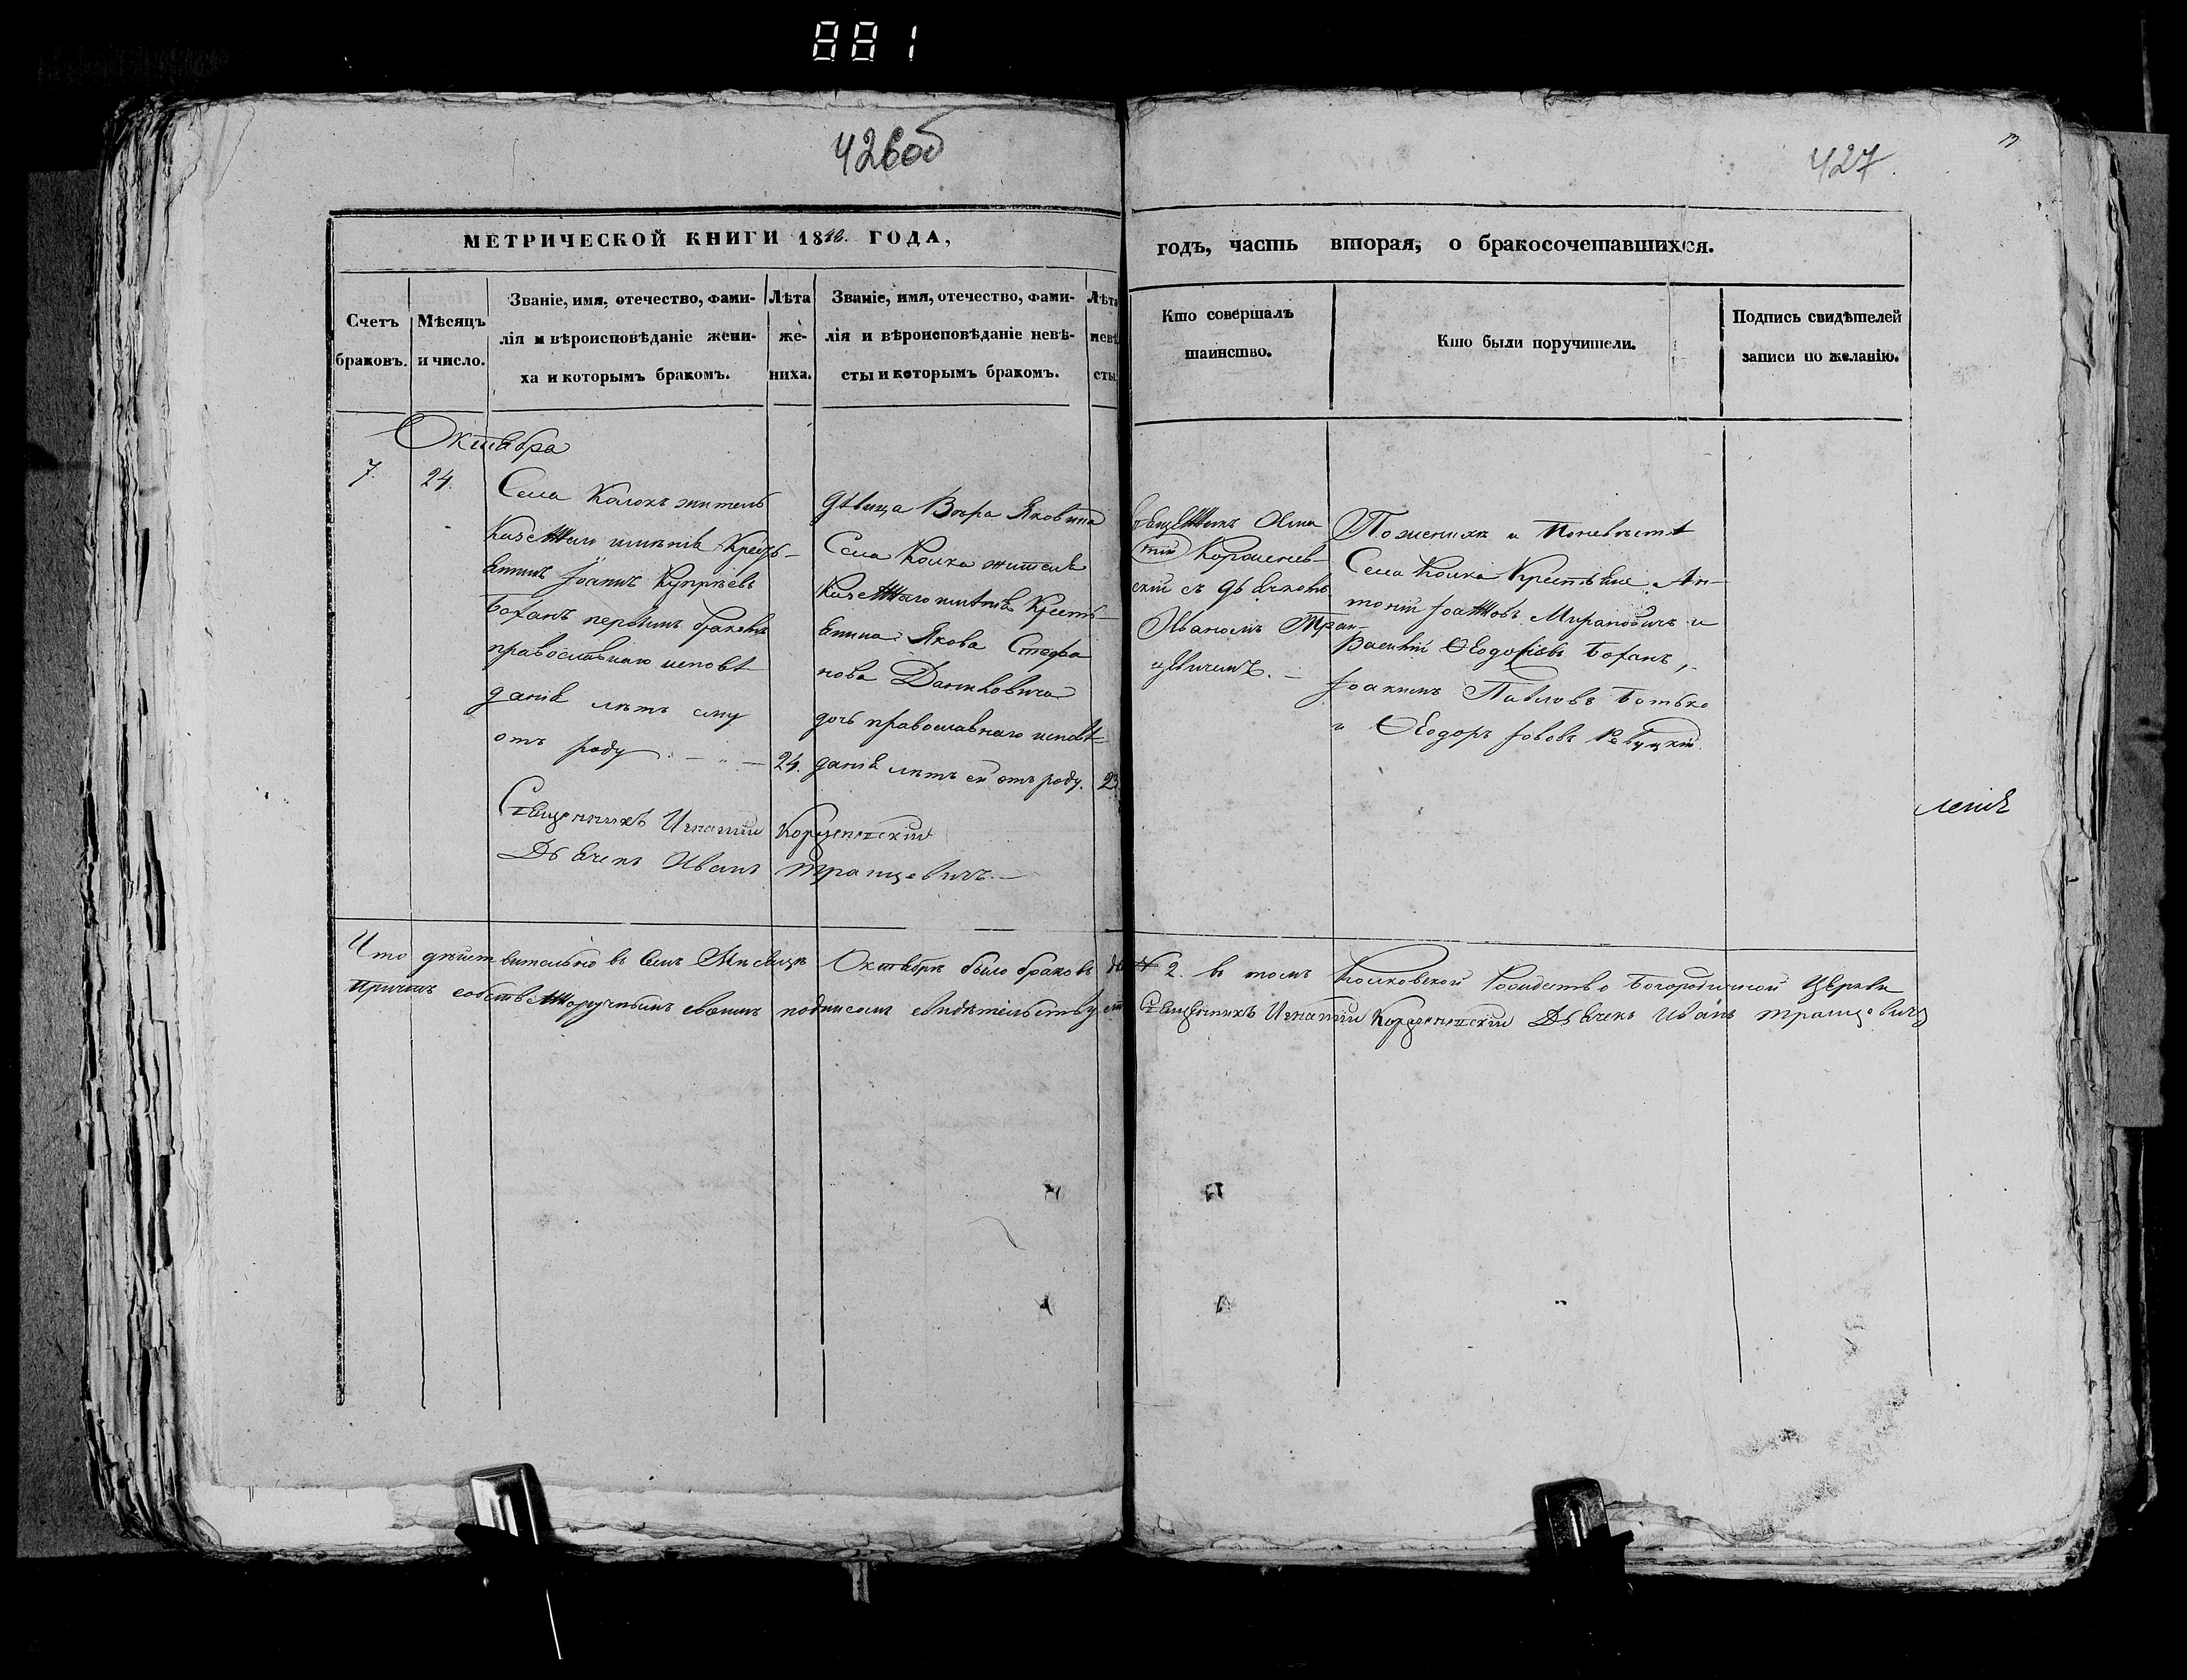 881
426об
427.
МЕТРИЧЕСКОЙ КНИГИ 18 ГОДА,
годъ, часть вторая, о бракосочетавшихся.
Счетъ браковъ.
Мѣсяцъ и число.
Званіе, имя, отечество, фами-
лія и вѣроисповѣданіе жени-
ха и которымъ бракомъ.
Лѣта
же-
ниха.
Званіе, имя, отечество, фами-
лія и вѣроисповѣданіе невѣ-
сты и которымъ бракомъ.
Лѣта
невѣ
сты
Кто совершалъ
таинство.
Кто были поручители.
Подпись свидѣтелей
записи по желанію.
Октября
7.
24.
Села Колокъ житель
Казеннаго имѣнія Кресть-
янинъ Іоаннъ Купріевъ
Боханъ первымъ бракомъ
православнаго исповѣ
данія лѣтъ ему
отъ роду
24.
дѣвица Вѣра Яковина
Села Колка жителя
Казеннаго имѣнія Кресть-
янина Якова Стефа
нова Данковича
дочь православнаго исповѣ-
данія лѣтъ ей отъ роду.
23
Священникъ Игна
тій
скій съ дьячкомъ
Иваномъ Тран-
цевичемъ.
По женихѣ и По невѣстѣ
Села Колка Крестьяне Ан-
тоній Іоанновъ Мирановичъ и
Василій Ѳеодосіевъ Боханъ,
Іоакимъ Павловъ Ботько
и Ѳеодоръ Іововъ Ревуцкій.
Священникъ Игнатій
Дьячекъ Иванъ Транцевичъ.
леніе
Что дѣйствительно въ семъ Мѣсяцѣ Октябрѣ было браковъ № 2. въ томъ Колковской Рождество Богородичной Церкви
Причтъ собственноручнымъ своимъ подписомъ свидѣтельствуетъ Священникъ Игнатій Дьячекъ Иванъ Транцевичъ